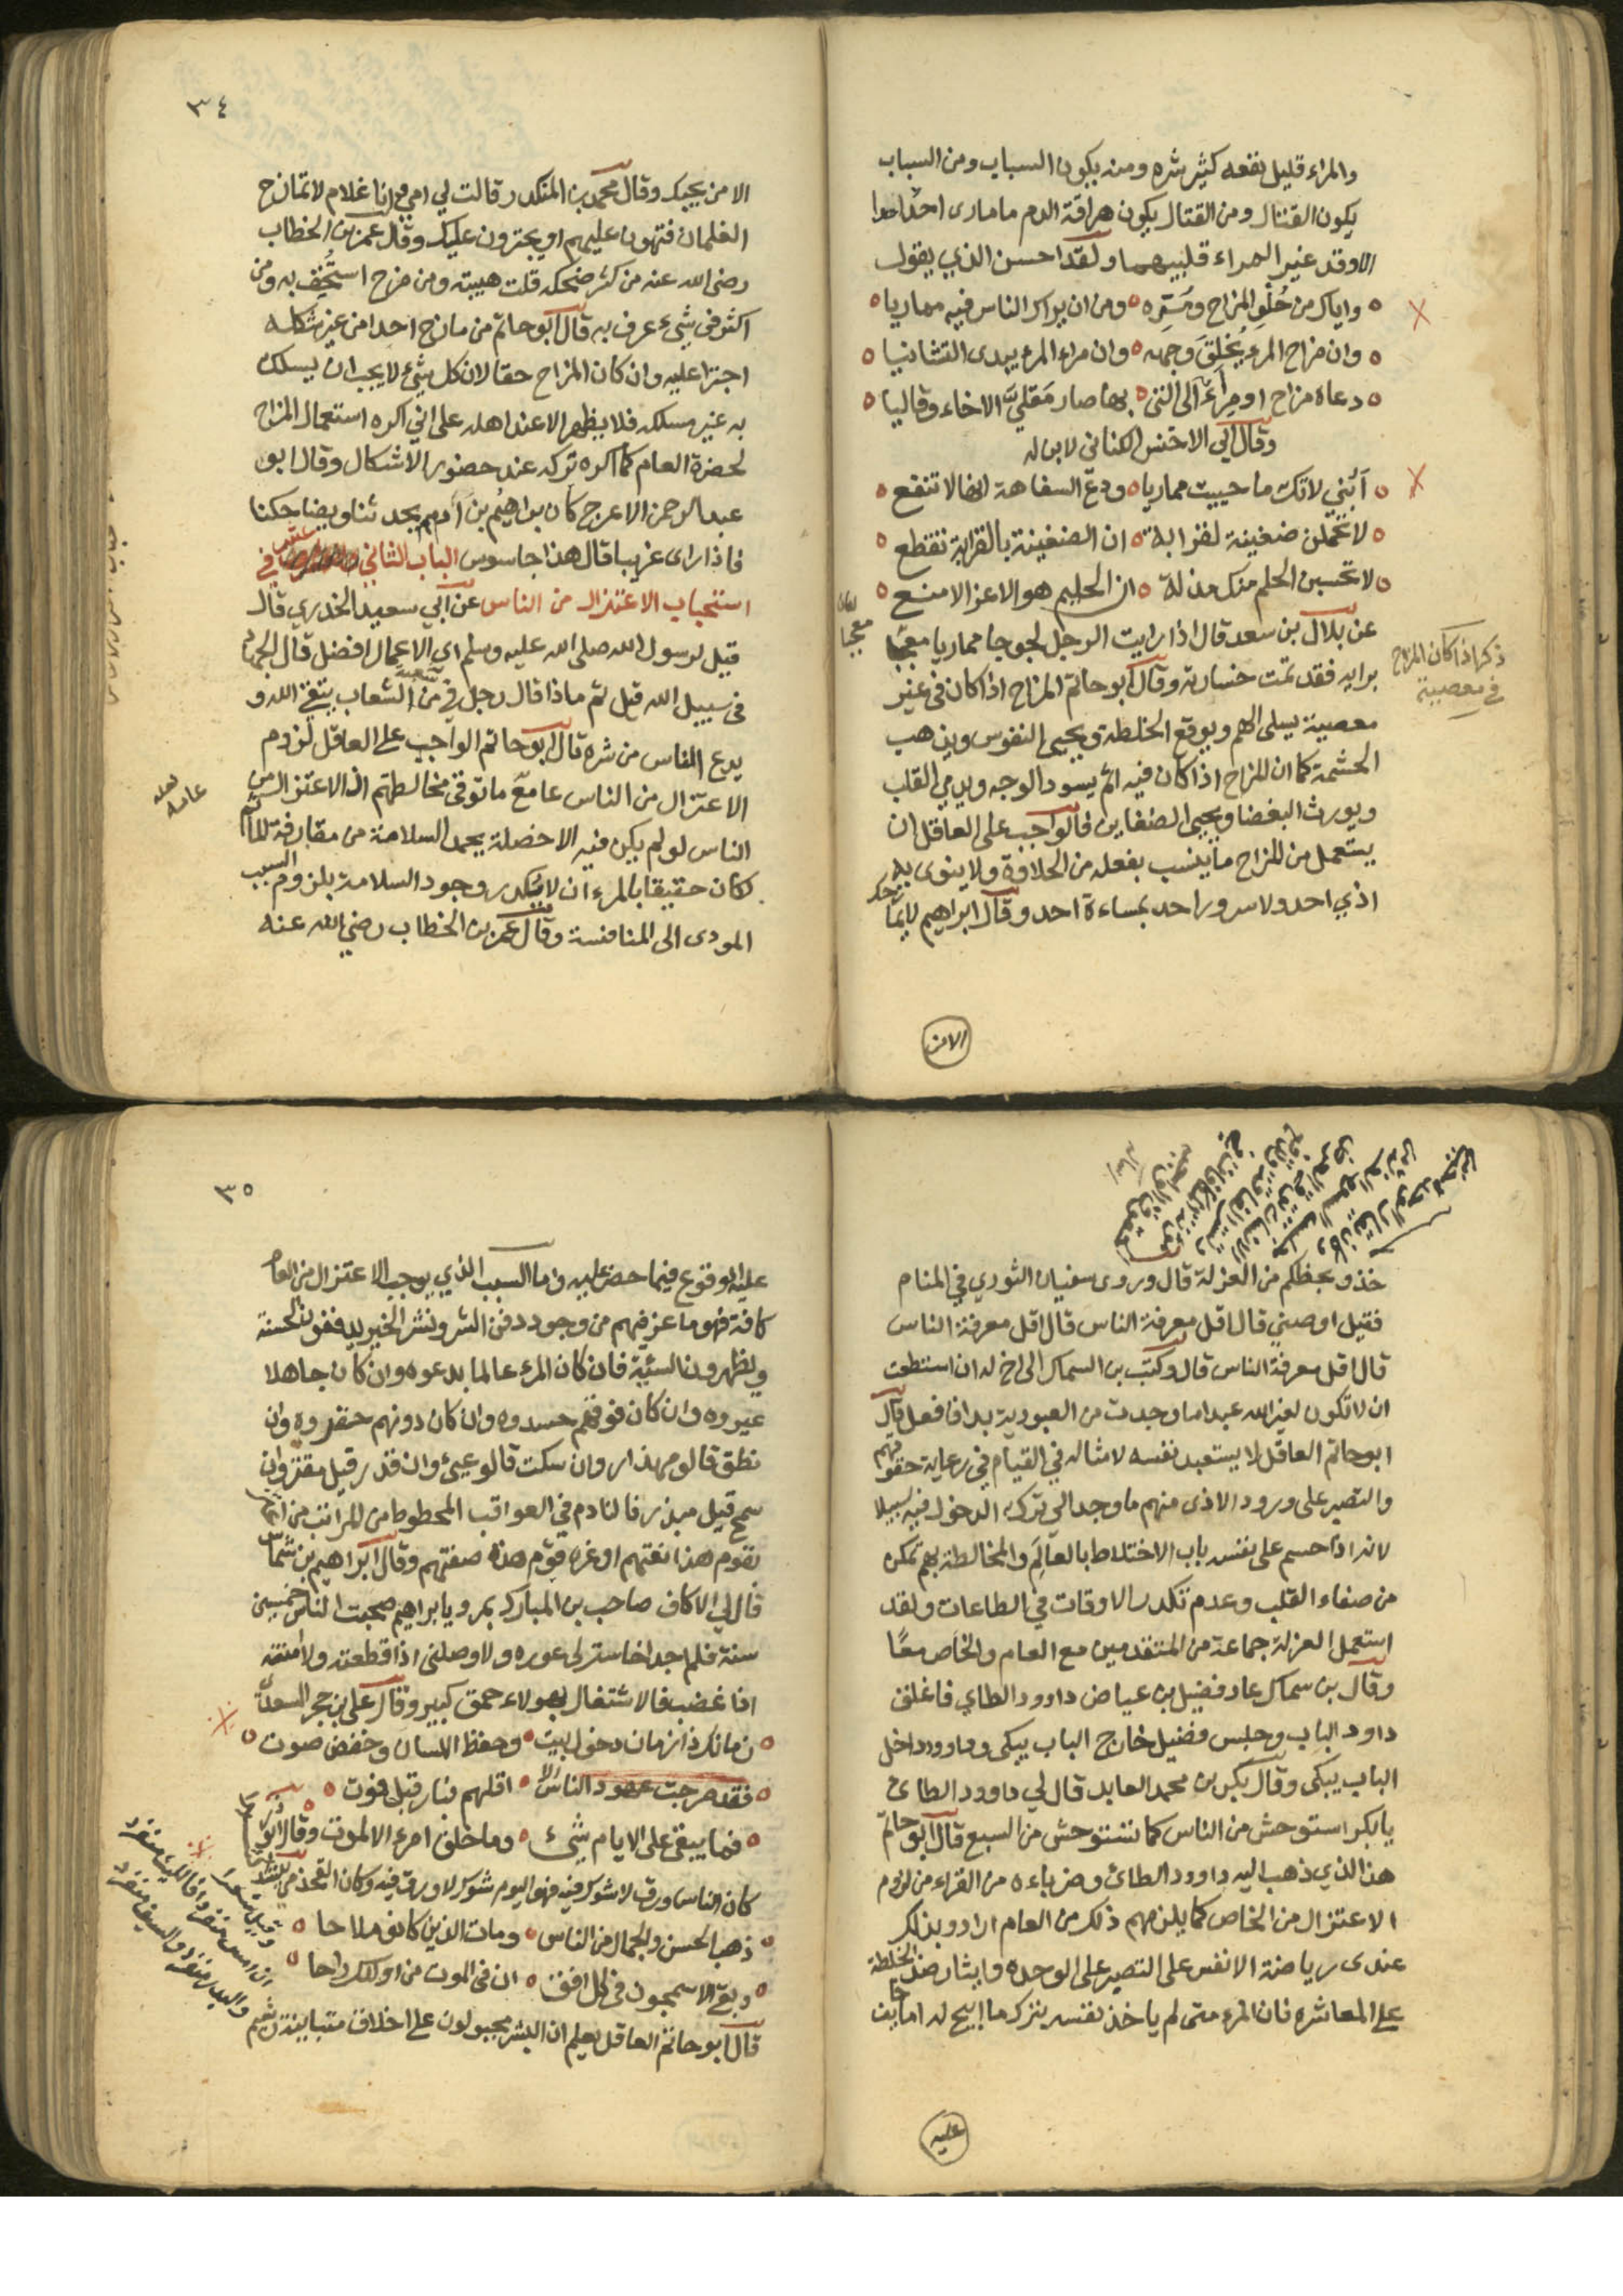 والمراء قليل نفعه كثير شره ومنه يكون السباب ومن السباب
يكون القتال ومن القتال يكون هراقة الدم ما مارى احد احدا
الا وقد غير المراء قلبيهما ولقد احسن الذي يقول
واياك من حُلْوِ المزاح ومُرِّه ومن ان يراك الناس فيه مماريا
وان مزاح المرء يُخْلِقَ وجهه وان مراء المرء يبدى التشانيا
دعاة مزاح او مِراءً الى التى بها صار مَقليَّ الاخاء وقاليا
وقال ابي الاخنس الكنانى لابن له
أبُنَيَّ لا تك ما حييت مماريا ودع السفاهة انها لا تنفع
لا تحملن ضغينة لقرابة ان الضغينة بالقرابة تقطع
لا تحسبن الحلم منك مذلة ان الحليم هو الاعز الامنع
عن بلال بن سعد قال اذا رايت الرجل لجوجا مماريا معجبا
برايه فقد تمت خسارته وقال ابو حاتم المزاح اذا كان فى غير
معصية يسلى الهم ويوقع الخلطة ويحيى النفوس ويذهب
الحشمة كما ان المزاح اذا كان فيه اثم يسود الوجه ويدمي القلب
ويورث البغضا ويحيى الضغاين فالواجب على العاقل ان
يستعمل من المزاح ما ينسب بفعله من الحلاوة ولا ينوى به
اذي احد ولا سرور احد بمساءة احد وقال ابراهيم لا يمازحك
معجبا
ذكر اذا كان المزاح
في معصية
الامن
٣٤
الا من يحبك وقال محمد بن المنكدر قالت لي امي وانا غلام لا تمازح
الغلمان فتهون عليهم او يجترون عليك وقال عمر بن الخطاب
رضى الله عنه من كثر ضحكه قلت هيبته ومن مزح استُخِف به ومن
اكثر فى شيء عرف به قال ابو حاتم من مازح احدا من غير شكله
اجترا عليه وان كان المزاح حقا لان كل شيء لا يجب ان يسلك
به غير مسلكه فلا يظهر الا عند اهله على اني اكره استعمال المزاح
لحضرة العام كما اكره تركه عند حضور الاشكال وقال ابو
عبد الرحمن الاعرج كان براهيم بن أدهم يحدثنا ويضاحكنا
فاذا راى غريبا قال هذا جاسوس الباب الثاني عشر في
استحباب الاعتزال من الناس عن ابي سعيد الخدري قال
قيل لرسول الله صلى الله عليه وسلم اي الاعمال افضل قال الجهاد
فى سبيل الله قيل ثم ماذا قال رجل في شعب من الشعاب يتقي الله و
يدع الناس من شره قال ابو حاتم الواجب على العاقل لزوم
الاعتزال من الناس عامع ما توقى مخالطتهم اذ الاعتزال من
الناس لو لم يكن فيه الا خصلة يحمد السلامة من مقارفة المأثم
لكان حقيقا بالمرء ان لا يكدر وجود السلامة بلزوم السبب
المودى الى المنافسة وقال عمر بن الخطاب رضي الله عنه
لعله
عامة
خذو بحظكم من العزلة قال وروى سفيان الثوري في المنام
فقيل اوصنى قال اقل معرفة الناس قال اقل معرفة الناس
قال اقل معرفة الناس قال وكتب بن السماك الى اخ له ان استطعت
ان لا تكون لغير الله عبدا ما وجدت من العبودية بدا فافعل قال
ابو حاتم العاقل لا يستعبد نفسه لامثاله في القيام في رعاية حقوقهم
والتصبر على ورود الاذى منهم ما وجد الي ترك الدخول فيه سبيلا
لانه اذا حسم على نفسه باب الاختلاط بالعالَمِ والمخالطة بهم تمكن
من صفاء القلب وعدم تكدر الاوقات في الطاعات ولقد
استعمل العزلة جماعة من المتقدمين مع العام والخاص معًا
وقال بن سماك عاد فضيل بن عياض داوود الطاي فاغلق
داود الباب وجلس فضيل خارج الباب يبكى وداوود داخل
الباب يبكى وقال بكير بن محمد العابد قال لي داوود الطائ
يا بكر استوحش من الناس كما تستوحش من السبع قال ابو حاتم
هذا الذي ذهب اليه داوود الطائ وضرباءه من القراء من لزوم
الاعتزال من الخاص كما يلزمهم ذلك من العام ارادو بذلك
عندى رياضة الانفس على التصبر على الوحده وايثار ضد الخلطة
على المعاشره فان المرء متى لم ياخذ نفسه بترك ما ابيح له اما خايف
عليه
٣٥
عليه الوقوع فيما حضر عليه واما السبب الذي يوجب الاعتزال من العام
كافة فهو ما عرفهم من وجود دفن الشر ونشر الخير يدفنون الحسنة
ويظهرون السئية فان كان المرء عالما بدعوه وان كان جاهلا
عيروه وان كان فوقهم حسدوه وان كان دونهم حقروه وان
نطق قالو مهذار وان سكت قالو عيئ وان قدر قيل مقتر وان
سمح قيل مبذر فالنادم في العواقب المحطوط من المراتب من اغتر
بقوم هذا نعتهم او غره قوم هذه صفتهم وقال ابراهيم بن شماس
قال لي الاكاف صاحب بن المبارك بمرو يا براهيم صحبت الناس خمسين
سنة فلم اجد اخا ستر لي عوره ولا وصلنى اذا قطعته ولا امنته
اذا غضب فالاشتغال بهولاء حمق كبير وقال علي بن حجر السعدي
زمانك ذا زمان دخول بيت وحفظ اللسان وخفض صوت
فقد مرجت عهود الناس الا اقلهم فبادر قبل فوت
فما يبقى على الايام شيئ وما خلق امرء الا لموت وقال ابو
كان الناس ورقا لا شوك فيه فهم اليوم شوك لا ورق فيه وكان
ذهب الحسن والجمال من الناس ومات الذين كانو ملاحا
وبقى الاسمجون فى كل افق ان فى الموت من اولئك راحا
قال ابو حاتم العاقل يعلم ان البشر مجبولون على اخلاق متباينة وشيم